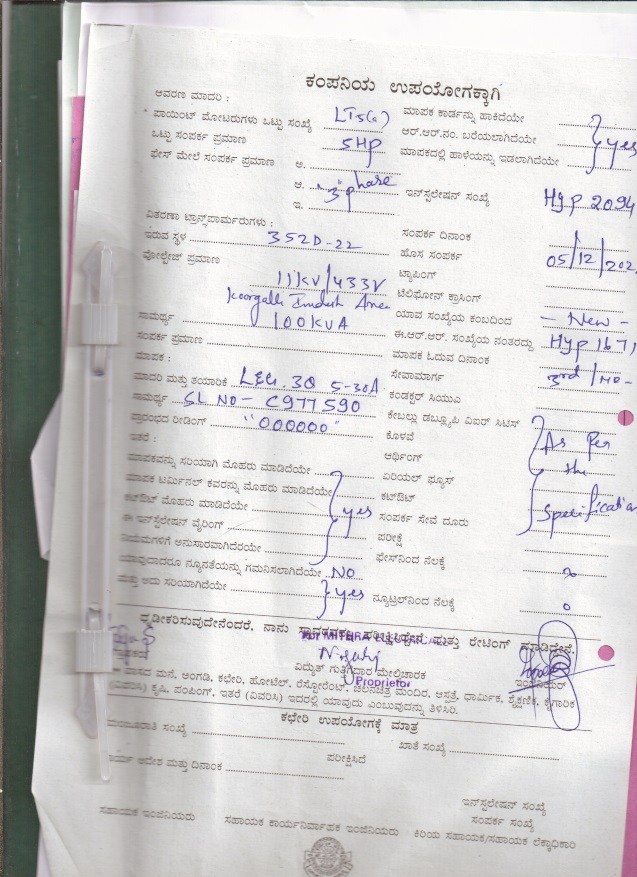 ಕಂಪನಿಯ ಉಪಯೋಗಕ್ಕಾಗಿ
ಆವರಣ ಮಾದರಿ :
* ಪಾಯಿಂಟ್ ಮೋಟರುಗಳು ಒಟ್ಟು ಸಂಖ್ಯೆ LT5(a)
ಒಟ್ಟು ಸಂಪರ್ಕ ಪ್ರಮಾಣ 5HP
ಫೇಸ್ ಮೇಲೆ ಸಂಪರ್ಕ ಪ್ರಮಾಣ ಅ.
ಆ. "3" phase
ಇ.
ಮಾಪಕ ಕಾರ್ಡನ್ನು ಹಾಕಿದೆಯೇ
ಆರ್.ಆರ್.ನಂ. ಬರೆಯಲಾಗಿದೆಯೇ yes
ಮಾಪಕದಲ್ಲಿ ಹಾಳೆಯನ್ನು ಇಡಲಾಗಿದೆಯೇ
ಇನ್‌ಸ್ಟಲೇಷನ್ ಸಂಖ್ಯೆ Hyp 2094
ವಿತರಣಾ ಟ್ರಾನ್ಸ್‌ಫಾರ್ಮರುಗಳು :
ಇರುವ ಸ್ಥಳ 352D-22
ವೋಲ್ಟೇಜ್ ಪ್ರಮಾಣ 11KV/433V
Koorgalli Indust Area
ಸಾಮರ್ಥ್ಯ 100KVA
ಸಂಪರ್ಕ ಪ್ರಮಾಣ
ಮಾಪಕ :
ಮಾದರಿ ಮತ್ತು ತಯಾರಿಕೆ L&G. 3Q 5-30A
ಸಾಮರ್ಥ್ಯ SL NO - C977590
ಪ್ರಾರಂಭದ ರೀಡಿಂಗ್ "000000"
ಇತರೆ :
ಸಂಪರ್ಕ ದಿನಾಂಕ
ಹೊಸ ಸಂಪರ್ಕ 05/12/202
ಟ್ಯಾಪಿಂಗ್
ಟೆಲಿಫೋನ್ ಕ್ರಾಸಿಂಗ್
ಯಾವ ಸಂಖ್ಯೆಯ ಕಂಬದಿಂದ - New -
ಈ.ಆರ್.ಆರ್. ಸಂಖ್ಯೆಯ ನಂತರದ್ದು Hyp 1671
ಮಾಪಕ ಓದುವ ದಿನಾಂಕ
ಸೇವಾಮಾರ್ಗ 3rd/Mo-
ಕಂಡಕ್ಟರ್ ಸಿಯುಎ
ಕೇಬಲ್ಲು ಡಬ್ಲ್ಯೂಪಿ ಎಐರ್ ಸಿಟಿಸ್
ಕೊಳವೆ As per
ಆರ್ಥಿಂಗ್ the
ಮಾಪಕವನ್ನು ಸರಿಯಾಗಿ ಮೊಹರು ಮಾಡಿದೆಯೇ
ಮಾಪಕ ಟರ್ಮಿನಲ್ ಕವರನ್ನು ಮೊಹರು ಮಾಡಿದೆಯೇ
ಕಟ್‌ಔಟ್ ಮೊಹರು ಮಾಡಿದೆಯೇ yes
ಈ ಇನ್‌ಸ್ಟಲೇಷನ್ ವೈರಿಂಗ್
ನಿಯಮಗಳಿಗೆ ಅನುಸಾರವಾಗಿದೆರಯೇ
ಯಾವುದಾದರೂ ನ್ಯೂನತೆಯನ್ನು ಗಮನಿಸಲಾಗಿದೆಯೇ NO
ಮತ್ತು ಅದು ಸರಿಯಾಗಿದೆಯೇ yes
ಏರಿಯಲ್ ಫ್ಯೂಸ್
ಕಟ್‌ಔಟ್ Specification
ಸಂಪರ್ಕ ಸೇವೆ ದೂರು
ಪರೀಕ್ಷೆ
ಫೇಸ್‌ನಿಂದ ನೆಲಕ್ಕೆ
ನ್ಯೂಟ್ರಲ್‌ನಿಂದ ನೆಲಕ್ಕೆ 0
ದೃಢೀಕರಿಸುವುದೇನೆಂದರೆ, ನಾನು ಪರೀಕ್ಷಿಸಿದ್ದೇನೆ ಮತ್ತು ರೇಟಿಂಗ್ ಮಾಡಿದ್ದೇನೆ.
For MITHRA ELECTRICALS
ವಿದ್ಯುತ್ ಗುತ್ತಿಗೆದಾರ ಮೇಲ್ವಿಚಾರಕ
ಇಂಜಿನಿಯರ್
Proprietor
* ವಾಸದ ಮನೆ, ಅಂಗಡಿ, ಕಛೇರಿ, ಹೋಟೆಲ್, ರೆಸ್ಟೋರೆಂಟ್, ಚಲನಚಿತ್ರ ಮಂದಿರ, ಆಸ್ಪತ್ರೆ, ಧಾರ್ಮಿಕ, ಶೈಕ್ಷಣಿಕ, ಕೈಗಾರಿಕೆ
(ವಿವರಿಸಿ) ಕೃಷಿ, ಪಂಪಿಂಗ್, ಇತರೆ (ವಿವರಿಸಿ) ಇದರಲ್ಲಿ ಯಾವುದು ಎಂಬುವುದನ್ನು ತಿಳಿಸಿರಿ.
ಕಛೇರಿ ಉಪಯೋಗಕ್ಕೆ ಮಾತ್ರ
ಮಂಜೂರಾತಿ ಸಂಖ್ಯೆ ಖಾತೆ ಸಂಖ್ಯೆ
ಕಾರ್ಯ ಆದೇಶ ಮತ್ತು ದಿನಾಂಕ ಪರೀಕ್ಷಿಸಿದೆ
ಇನ್‌ಸ್ಟಲೇಷನ್ ಸಂಖ್ಯೆ
ಸಂಪರ್ಕ ಸಂಖ್ಯೆ
ಸಹಾಯಕ ಇಂಜಿನಿಯರು ಸಹಾಯಕ ಕಾರ್ಯನಿರ್ವಾಹಕ ಇಂಜಿನಿಯರು ಕಿರಿಯ ಸಹಾಯಕ/ಸಹಾಯಕ ಲೆಕ್ಕಾಧಿಕಾರಿ